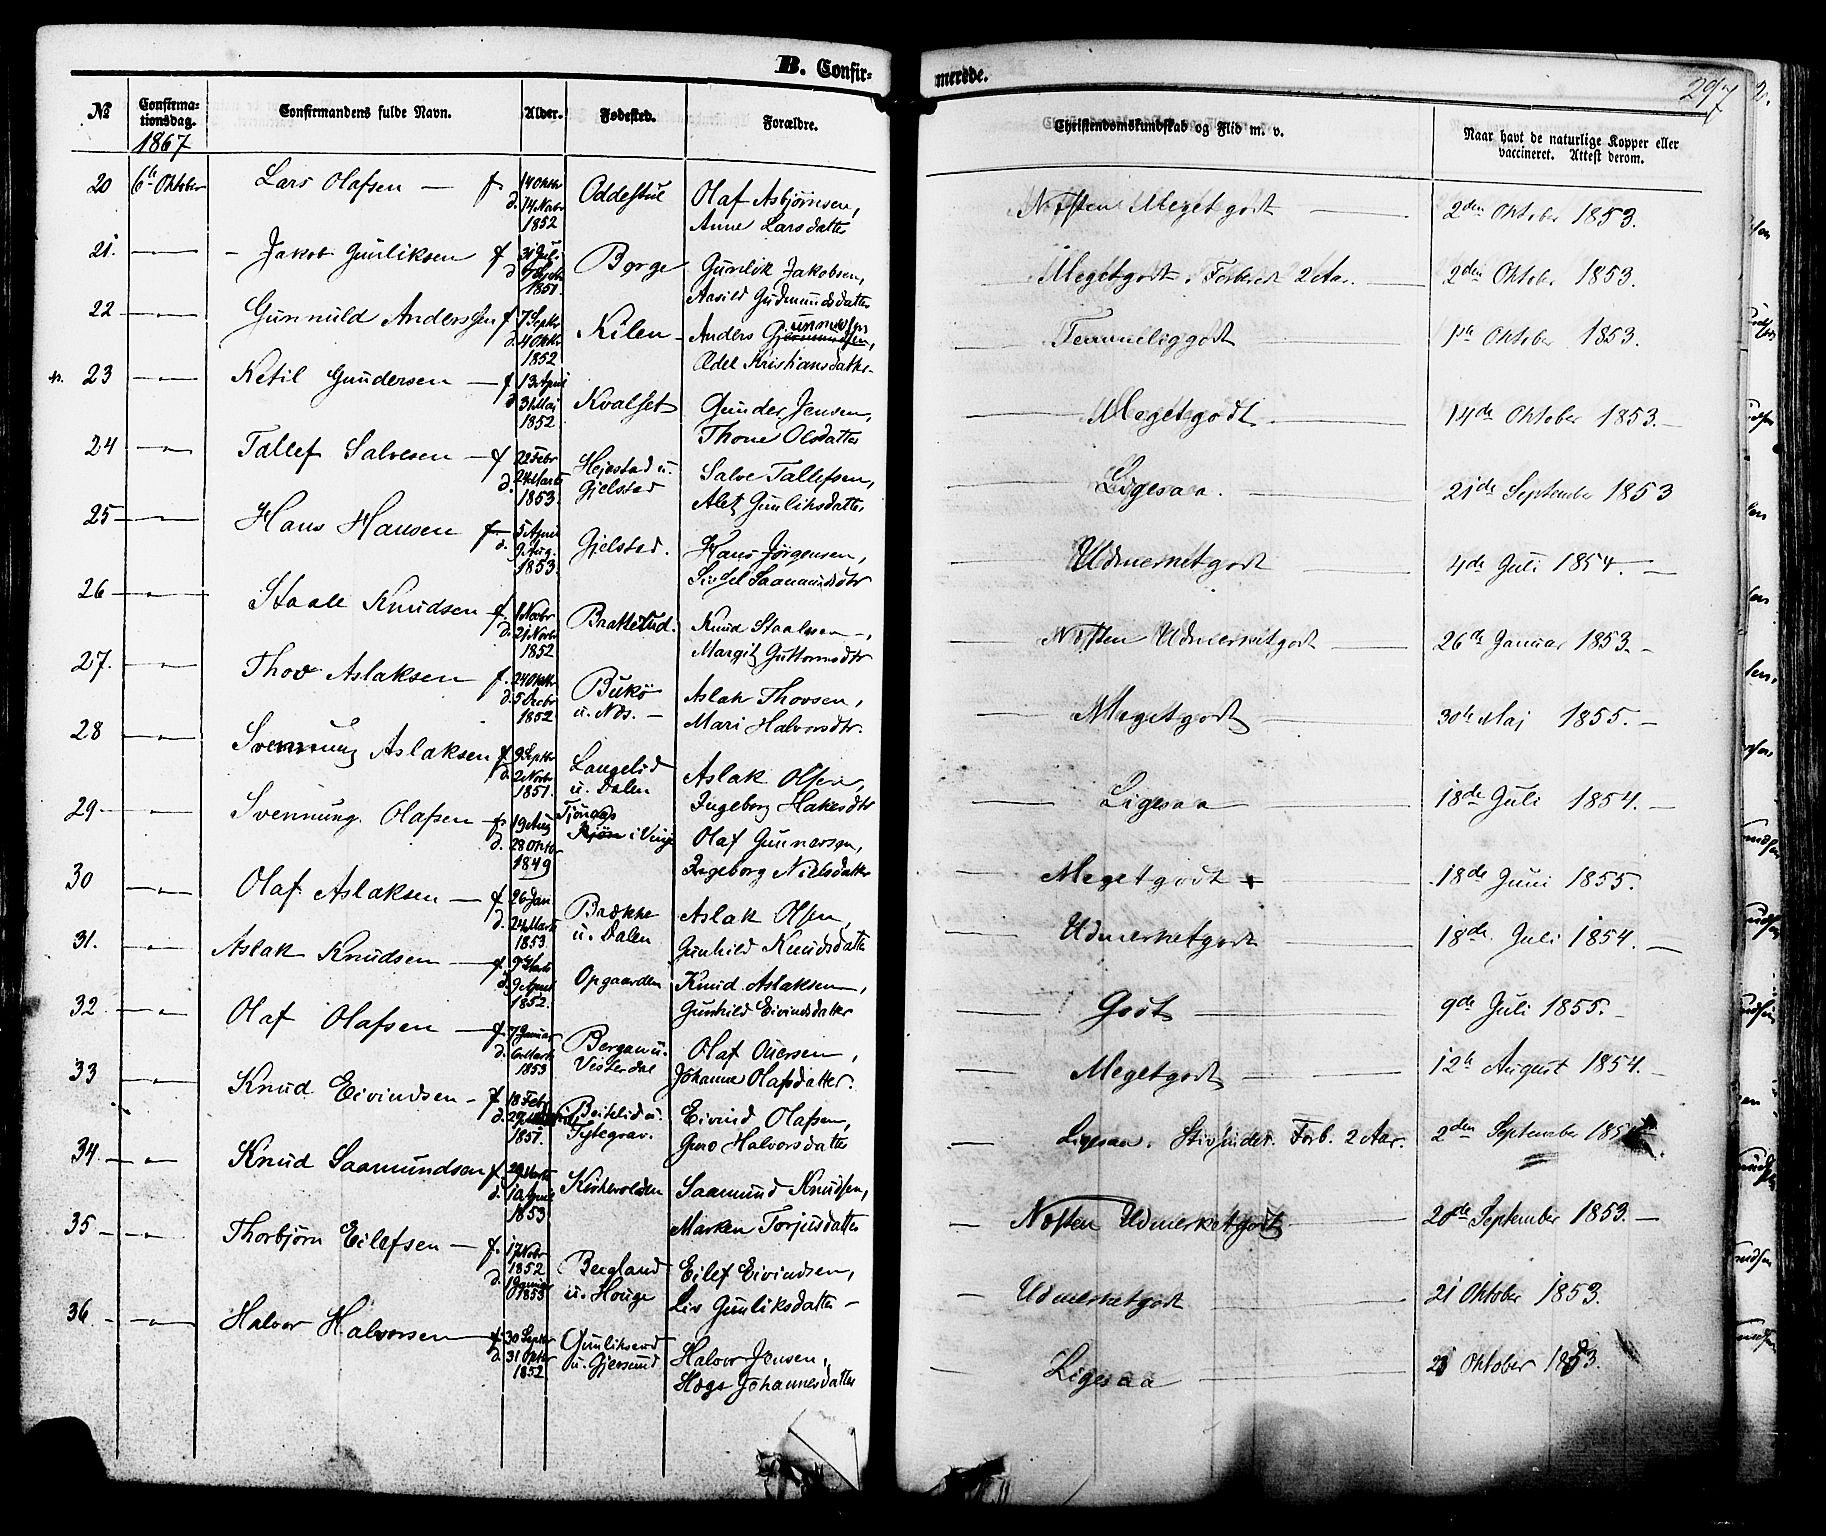 B. Confir-
merede.
297
№
Confirma-
tionsdag.
1867
Confirmandens fulde Navn.
Alder.
Fødested.
Forældre.
Christendomskundskab og Flid m. v.
Naar havt de naturlige Kopper eller
vaccineret. Attest derom.
20 6te Oktober Lars Olafsen — f. 14 Oktbr
d. 14 Novbr
1852
Oddestul
Olaf Asbjörnsen,
Anne Larsdatter
Næsten Meget godt — 2den Oktober 1853.
21 — " — Jakob Gunliksen f 31 Juli
d.
1851.
Borge
Gunlik Jakobsen,
Aasild Gudmundsdatter
Megetgodt. Forbered 2 Aar. 2den Oktober 1853.
22 — " — Gunnuld Anderssen f 7 Septbr
d. 4 Oktbr
1852
Kilen
Anders Gunnulfsen,
Ædel Kristiansdatter
Temmeliggodt 1ste Oktober 1853.
23 — " — Ketil Gundersen — f 13 April
d 31 Maj
1852
Kvalset
Gunder Jensen,
Thone Olsdatter
Megetgodt. 14de Oktober 1853. —
24 — " — Tallef Salvesen — f 22 Febr
d. 24 Marts
1853.
Hejestad u.
Gjelstad
Salve Tallefsen,
Alet Gunliksdatter
Ligesaa. 21de September 1853
25 — " — Hans Hansen f 5 April
d. 9 Aug.
1853.
Gjelstad.
Hans Jörgensen,
Sigdel Saamundsdtr
Udmerketgodt 4de Juli 1854. —
26 — " — Staale Knudsen f. 1 Novbr
d. 21 Novbr
1852
Baatkelund.
Knud Staalesen —,
Margit Guttormsdtr
Næsten Udmerketgodt — 26de Januar 1853. —
27. — " — Thov Aslaksen — f. 24 Oktbr
d. 5 Decbr
1852
Bukö
u. Næs. —
Aslak Thovsen,
Mari Halvorsdtr.
Megetgodt — 30te Maj 1855. —
28 — " — Svennung Aslaksen f 9 Septbr
d. 2 Novbr
1851.
Langelid
u. Dalen
Aslak Olsen,
Ingeborg Hakesdtr
Ligesaa — 18de Juli 1854. —
29 — " — Svennung Olafsen — f. 19 Aug
d. 28 Oktbr
1849
i Vinje
Olaf Gunnarsen,
Ingeborg Nielsdatter
Megetgodt — 18de Juni 1855.
30 — " — Olaf Aslaksen — f. 26 Jan
d. 24 Marts
1853
Brække
u. Dalen
Aslak Olsen,
Gunhild Knudsdatter
Udmerketgodt — 18de Juli 1854. —
31. — " — Aslak Knudsen — f. 9 Marts
d. 9 April
1852.
Opgaarden
Knud Aslaksen,
Gunhild Eivindsdatter
Godt — 9de Juli 1855. —
32 — " — Olaf Olafsen — f. 7 Januar
d. 6 Marts
1853
Bergan u.
Vesterdal
Olaf Ouersen,
Johanne Olafsdatter.
Megetgodt — 12te August 1854. —
33 — " — Knud Eivindsen — f. 18 Febr
d. 29
1851.
Beitelid u.
Tytegrav.
Eivind Olafsen,
Gyro Halvorsdatter
Ligesaa. Stivsindet. Forb. 2 Aar. 2den September
34 — " — Knud Saamundsen f. 29 Marts
d. 10 April
1853
Kirkevolden
Saamund Knudsen,
Marken Torjusdatter
Næsten Udmerketgodt — 20de September 1853. —
35 — " — Thorbjörn Eilefsen — f. 17 Novbr
1852
d. 1 Januar
1853
Bergland
u. Houge
Eilef Eivindsen,
Liv Gunliksdatter —
Udmerketgodt — 21 Oktober 1853.
36 — " — Halvor Halvorsen — f. 30 Septbr
d. 31 Oktbr
1852
Gunliksrod
u. Gjersund
Halvor Jensen,
Hæge Johannesdatter
Ligesaa — Oktober 1853.